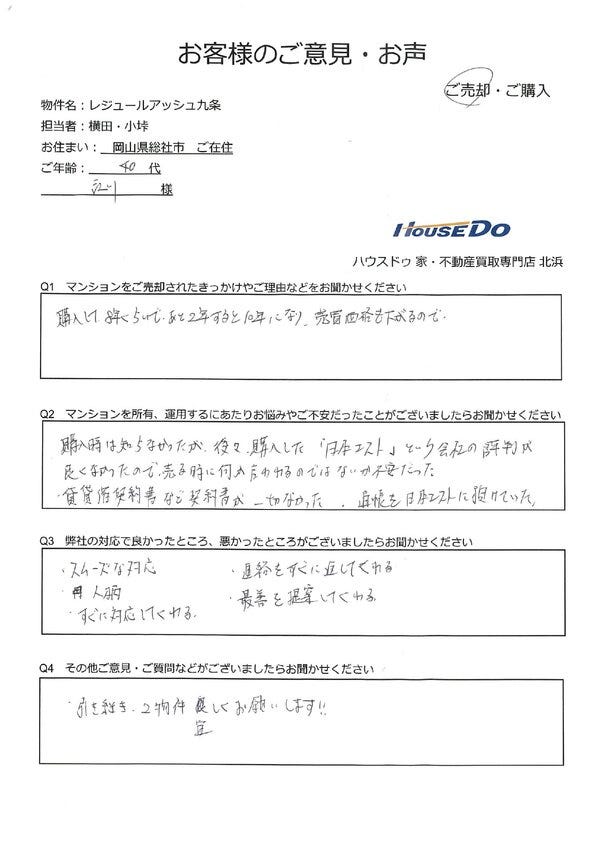 お客様のご意見・お声
ご売却・ご購入
物件名：レジュールアッシュ九条
担当者：横田・小垰
お住まい： 岡山県総社市 ご在住
ご年齢： 40 代
様
HOUSEDO
ハウスドゥ 家・不動産買取専門店 北浜
Q1 マンションをご売却されたきっかけやご理由などをお聞かせください
購入して 8年くらいで、あと2年すると10年になり、売買価格も下がるので。
Q2 マンションを所有、運用するにあたりお悩みやご不安だったことがございましたらお聞かせください
購入時は知らなかったが、後々、購入した「日本エスト」という会社の評判が
良くなかったので、売る時に何か言われるのではないか不安だった
・賃貸借契約書など契約書が一切なかった 、通帳を日本エストに預けていた。
Q3 弊社の対応で良かったところ、悪かったところがございましたらお聞かせください
・スムーズな対応 ・連絡をすぐに返してくれる
・人柄 ・最善を提案してくれる。
・すぐに対応してくれる。
Q4 その他ご意見・ご質問などがございましたらお聞かせください
・引き続き、2物件 しくお願いします!!
宜